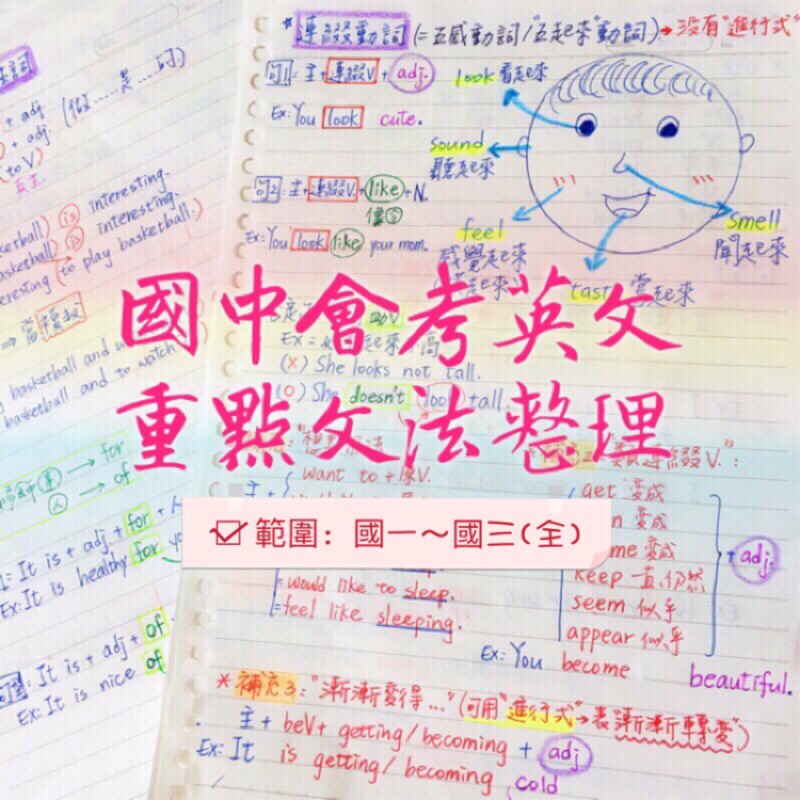 國中會考英文
重點文法整理
範圍：國一～國三(全)
*連綴動詞(=五感動詞/"五起來"動詞)→沒有"進行式"
句1=主+連綴V+adj.
Ex:You look cute.
句2:主+連綴V.+like+N.
像
Ex:You look like your mom.
look 看起來
sound
聽起來
feel
感覺起來
smell
聞起來
嘗起來
(X) She looks not tall.
(O) She doesn't look tall.
want to +原V.
=would like to sleep.
=feel like sleeping.
類連綴V.":
get 變成
變成
變成
keep 一直,仍然
seem 似乎
appear 似乎
adj.
Ex: You become beautiful.
*補充3:"漸漸變得…"(可用"進行式"→表漸漸轉變")
主+beV+ getting/becoming + adj
Ex: It is getting/becoming cold
+ adj
+ adj (做……是……的)
(to V)
is interesting.
is interesting.
(to play basketball.)
basketball and
basketball and to watch
→ for
→ of
It is + adj + for +
Ex: It is healthy for
It is + adj + of
Ex: It is nice of